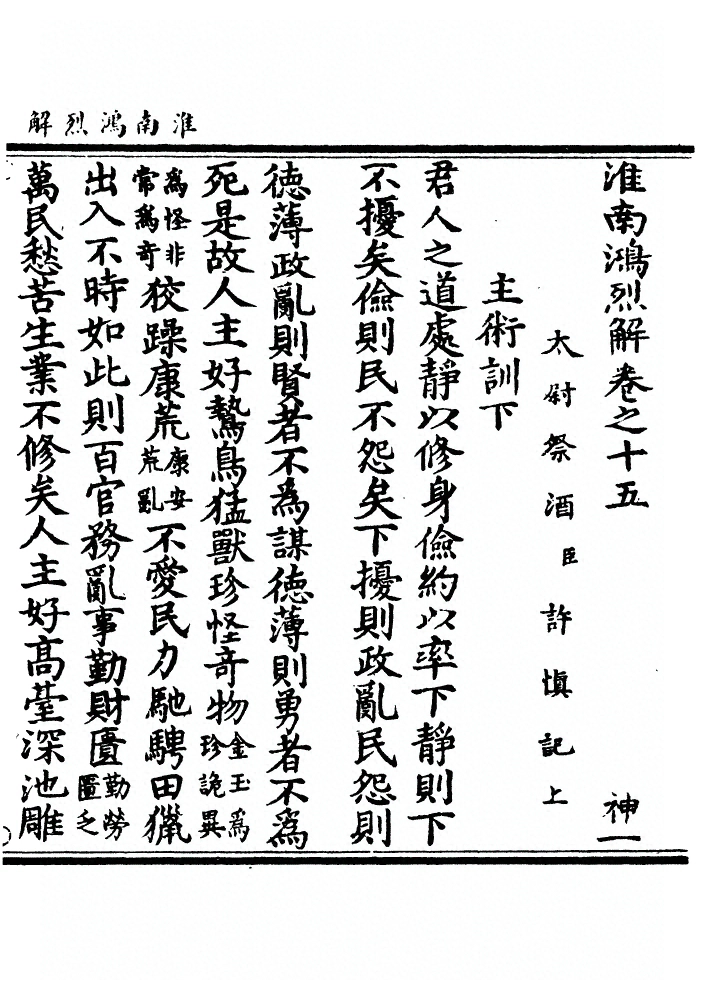 淮南鴻烈解
淮南鴻烈解卷之十五 神一
太尉祭酒臣許慎記上
主術訓下
君人之道處靜以修身儉約以率下靜則下
不擾矣儉則民不怨矣下擾則政亂民怨則
徳薄政亂則賢者不為謀徳薄則勇者不為
死是故人主好鷙鳥猛獸珍怪奇物金玉為珍詭異
為怪非常為奇狡躁康荒康安荒亂不愛民力馳騁田獵
出入不時如此則百官務亂事勤財匱勤勞匱乏
萬民愁苦生業不修矣人主好高臺深池雕